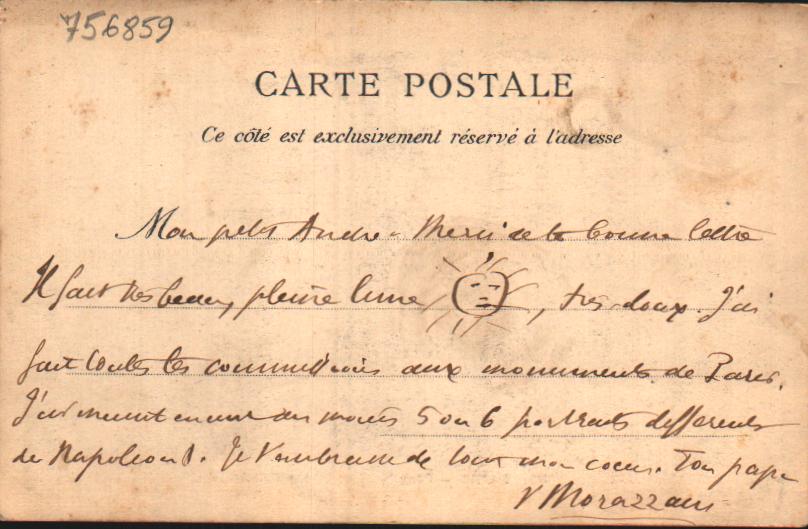 756859
CARTE POSTALE
Ce côté est exclusivement réservé à l'adresse
Mon petit André. Merci de ta bonne lettre
Il fait très beau, pleine lune, très doux. J'ai
fait toutes tes commissions aux monuments de Paris.
J'ai moins 5 ou 6 portraits différents
de Napoléon I. Je t'embrasse de tout mon coeur. Ton papa
V Morazzani